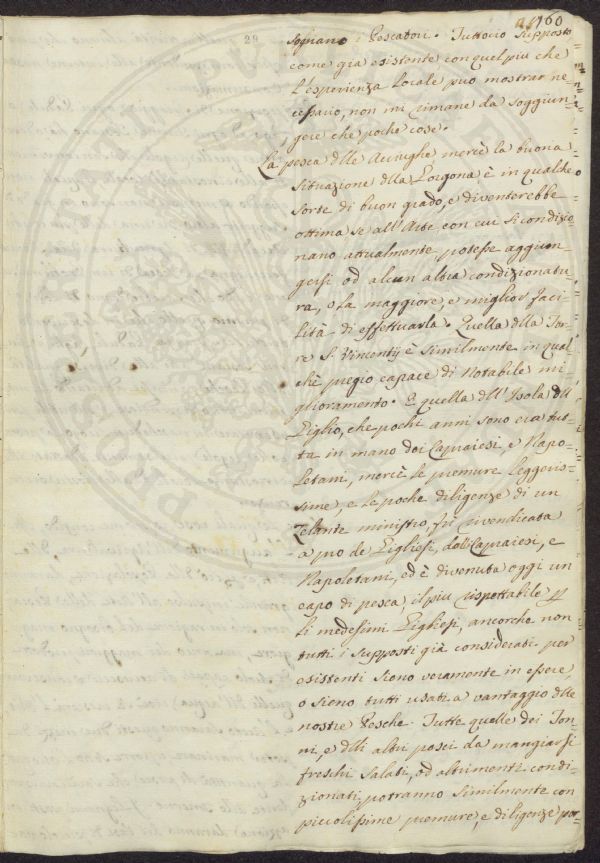 160
29
sognano i Pescatori. Tuttociò supposto
come già esistente con quel più che
l'esperienza locale può mostrar ne=
cessario, non mi rimane da soggiun=
gere che poche cose.
La pesca dlle Acciughe mercè la buona
situazione dlla Gorgona è in qualche
sorte di buon grado, e diventerebbe
ottima se all'Arte con cui si condizio=
nano attualmente, potesse aggiun=
gersi od alcun altra condizionatu=
ra, o la maggiore, e miglior faci=
lità di effettuarla. Quella dlla Tor=
re S. Vincentij è similmente in qual
chè pregio capace di notabile mi=
glioramento. E quella dll'Isola dll
Giglio, che pochi anni sono era tut=
ta in mano dei Capraiesi, e Napo=
letani, mercè le premure leggeris=
sime, e le poche diligenze di un
Zelante ministro, fù rivendicata
a pro de Gigliesi, dalli Capraiesi, e
Napoletani, ed è divenuta oggi un
capo di pesca, il più rispettabile p
li medesimi Gigliesi, ancorche non
tutti i supposti già considerati per
esistenti sieno veramente in essere,
o sieno tutti usati a vantaggio dlle
nostre Pesche. Tutte quelle dei Ton=
ni, e dlli altri pesci da mangiarsi
freschi salati, od altrimenti condi=
zionati, potranno similmente con
piccolissime premure, e diligenze por=